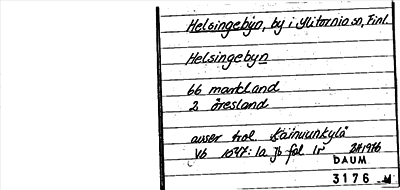 Helsingebyn, by i Ylitornio sn, Finl.
Helsingebyn
66 markland
2 öresland
avser trol Kainuunkylä
Vb 1047: 1a Jb fol 1r
DAUM
3176